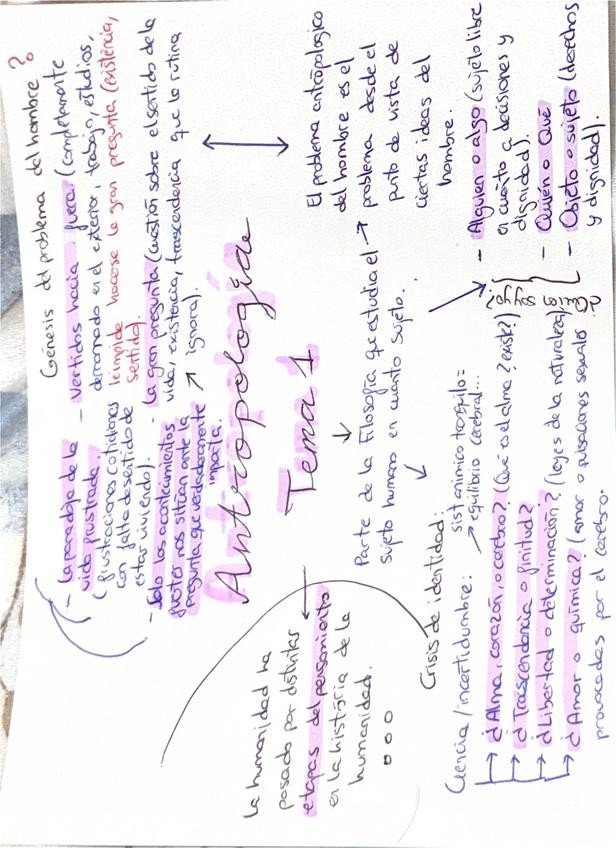 Génesis del problema del hombre?
- La paradoja de la
vida frustrada
(frustraciones cotidianas
con falta de sentido de
estar viviendo).
- Solo los acontecimientos
fuertes nos sitúan ante la
pregunta que verdaderamente
importa.
- Vertidos hacia fuera (completamente
derramado en el exterior, trabajo, estudios,
le impide hacerse la gran pregunta (existencia,
sentido).
- La gran pregunta (cuestión sobre el sentido de la
vida, existencia, trascendencia que la rutina
ignora).
Antropología
Tema 1
La humanidad ha
pasado por distintas
etapas del pensamiento
en la historia de la
humanidad.
Parte de la Filosofía que estudia el
sujeto humano en cuanto sujeto.
El problema antropológico
del hombre es el
problema desde el
punto de vista de
ciertas ideas del
hombre.
Crisis de identidad:
Ciencia / incertidumbre:
sist anímico tranquilo =
equilibrio cerebral...
¿Alma, corazón, o cerebro? (Qué es el alma? existe?)
¿Trascendencia o finitud?
¿Libertad o determinación? (leyes de la naturaleza)
¿Amor o química? (amor o pulsaciones sexuales
provocadas por el cerebro.
¿Quién soy yo?
- Alguien o algo (sujeto libre
en cuanto a decisiones y
dignidad).
- Quién o Qué
- Objeto o sujeto (derechos
y dignidad).